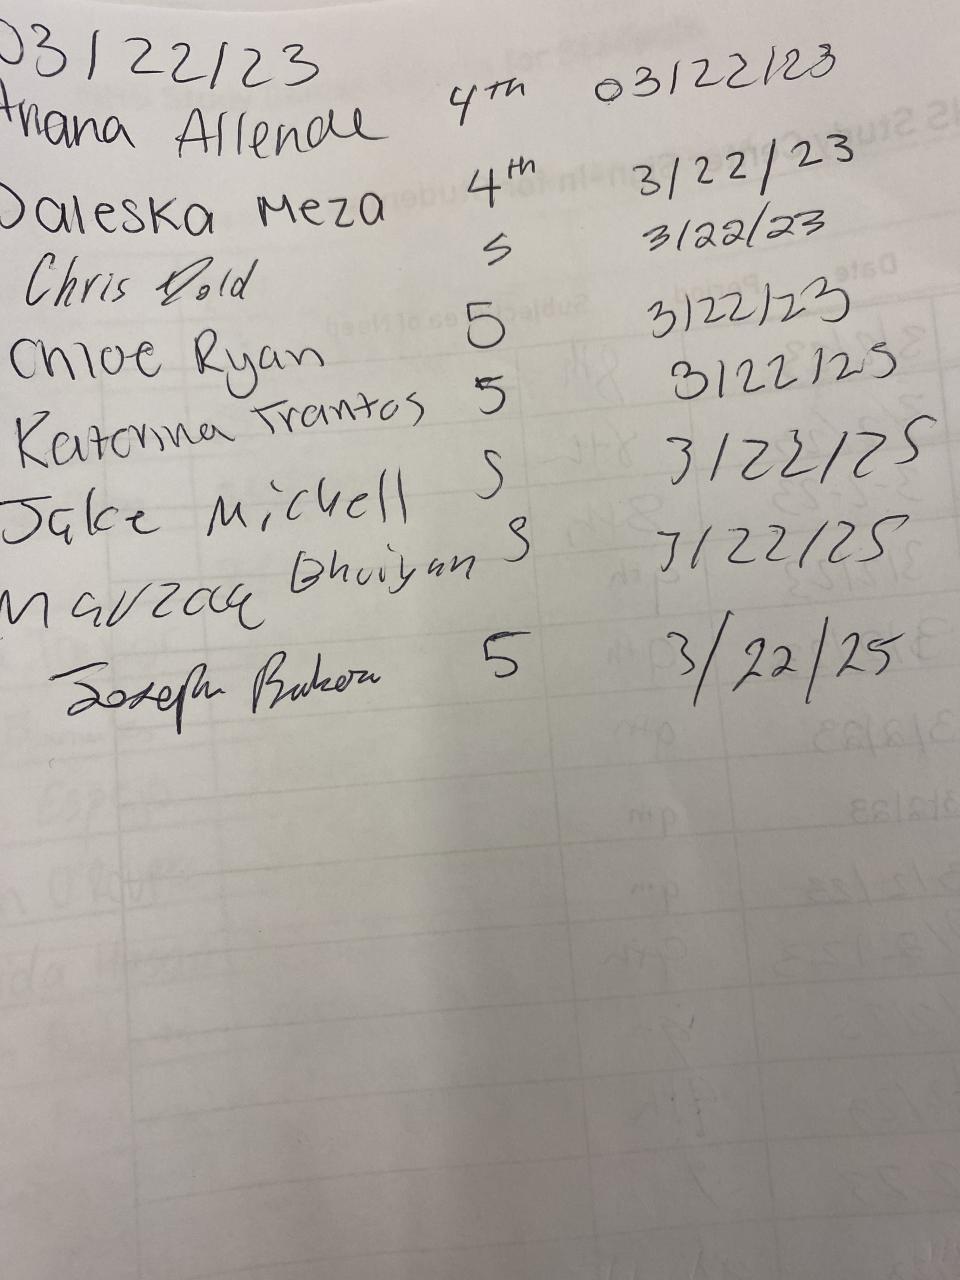 03/22/23
Ariana Allende 4th 03/22/23
Daleska Meza 4th 3/22/23
Chris Dold 5 3/22/23
Chloe Ryan 5 3/22/23
Katerina Trantos 5 3/22/25
Jake Mickell 5 3/22/25
Marzaq Bhuiyan 5 3/22/25
Joseph 5 3/22/25